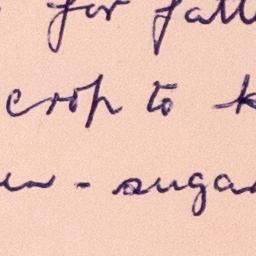 for fall
crop to k
- sugar